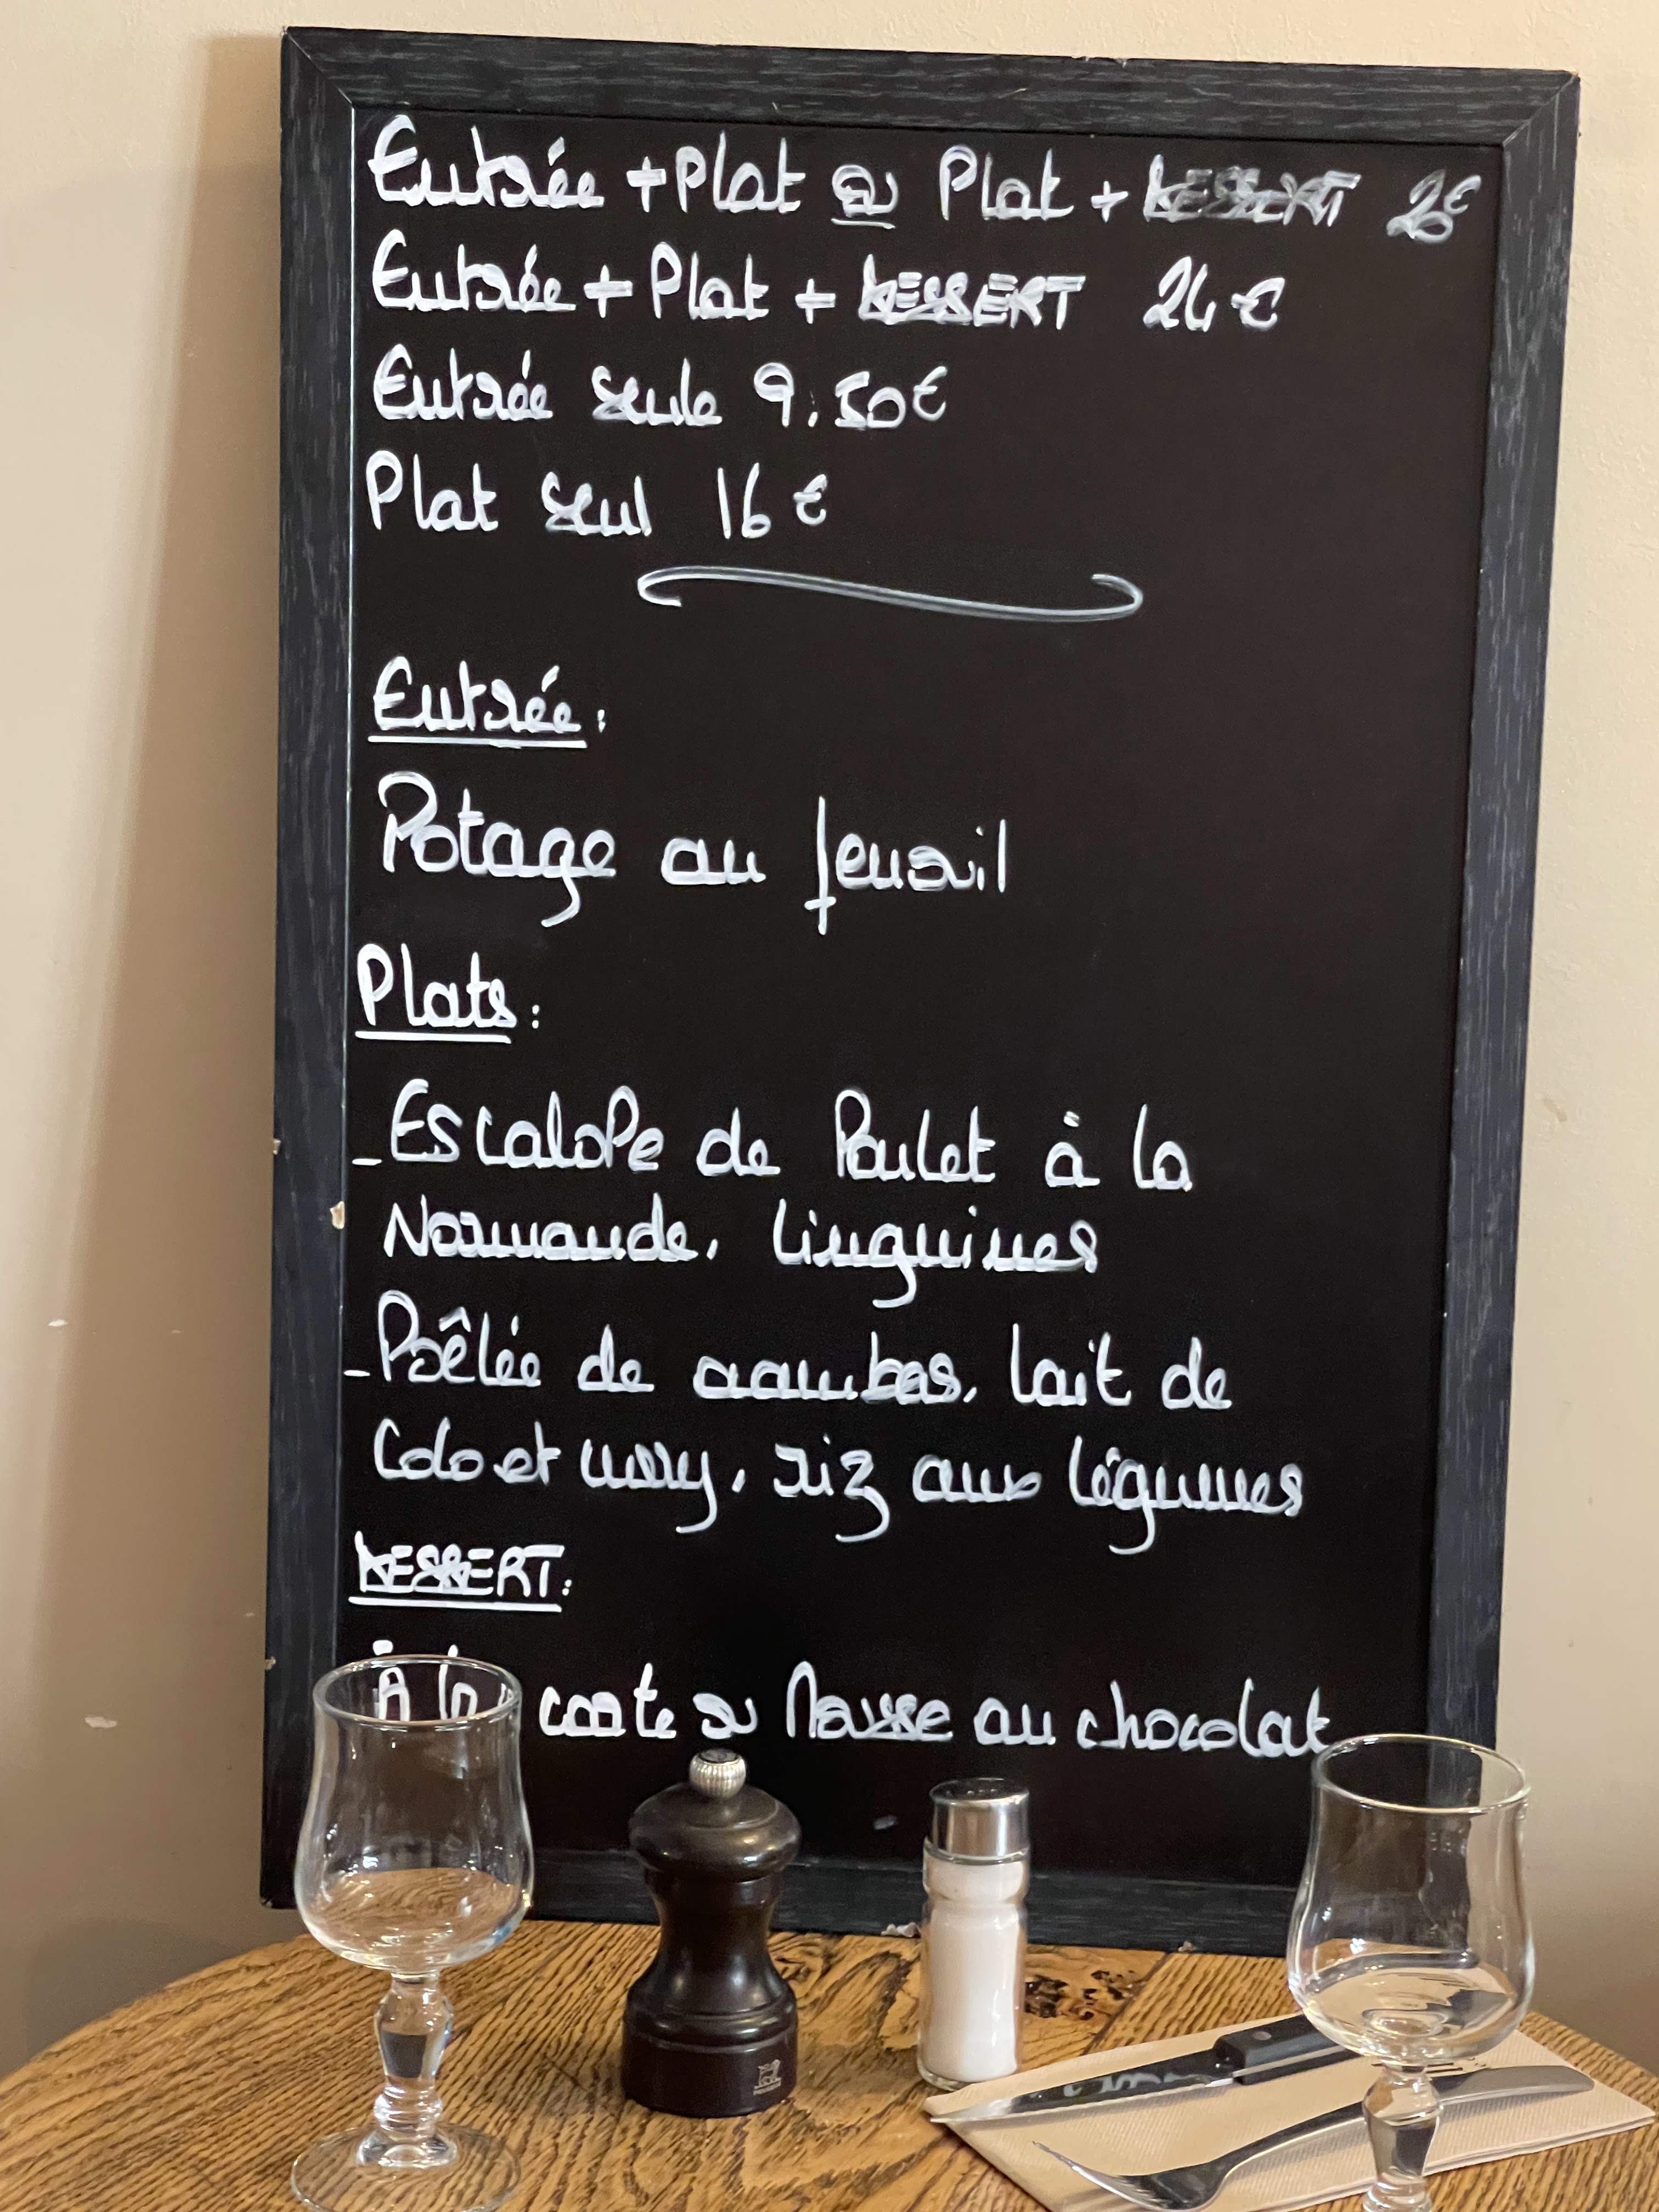 Entrée + Plat ou Plat + DESSERT
Entrée + Plat + DESSERT 24 €
Entrée seule 9.50€
Plat seul 16 €
Entrée :
Potage au fenouil
Plats :
- Escalope de Poulet à la
Normande, linguines
- Poêlée de gambas, lait de
Coco et curry, riz aux légumes
DESSERT :
À la carte ou Mousse au chocolat